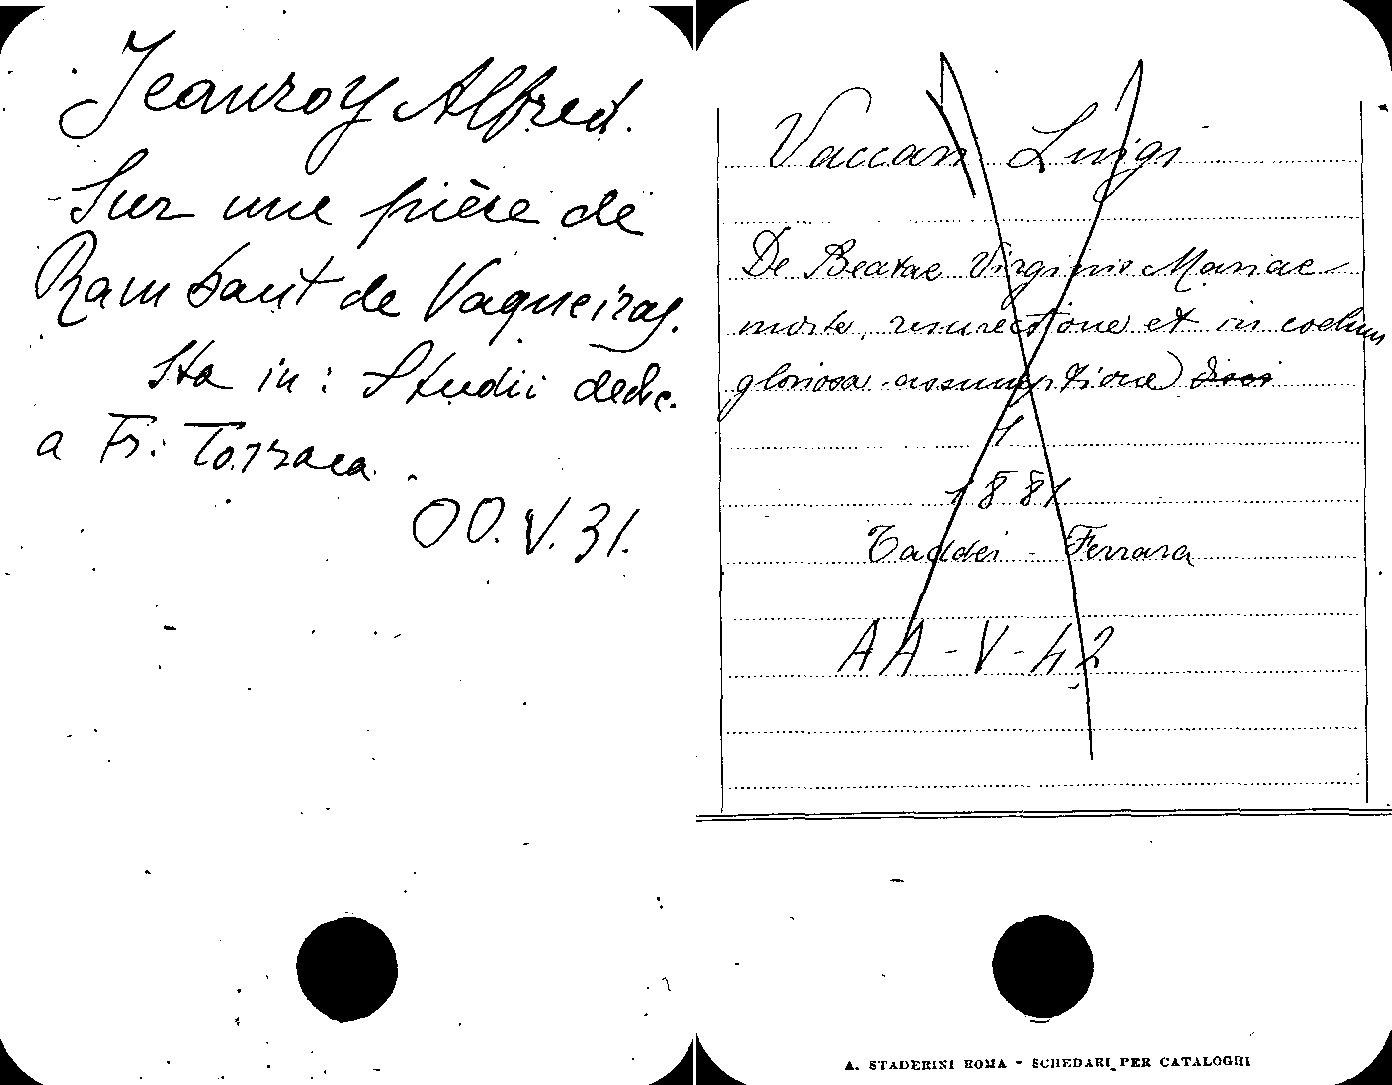 Jeanroy Alfred.
Sur une pièce de
Rambaut de Vaqueiras.
Sta in: Studii dedic.
a Fr: Torraca.
OO. V. 31.
Vaccari Luigi
De Beatae Virginis Mariae
morte, resurectione et in coelum
gloriosa assumptione
1881
Taddei - Ferrara
AA - V - 42
A. STADERINI ROMA - SCHEDARI PER CATALOGHI